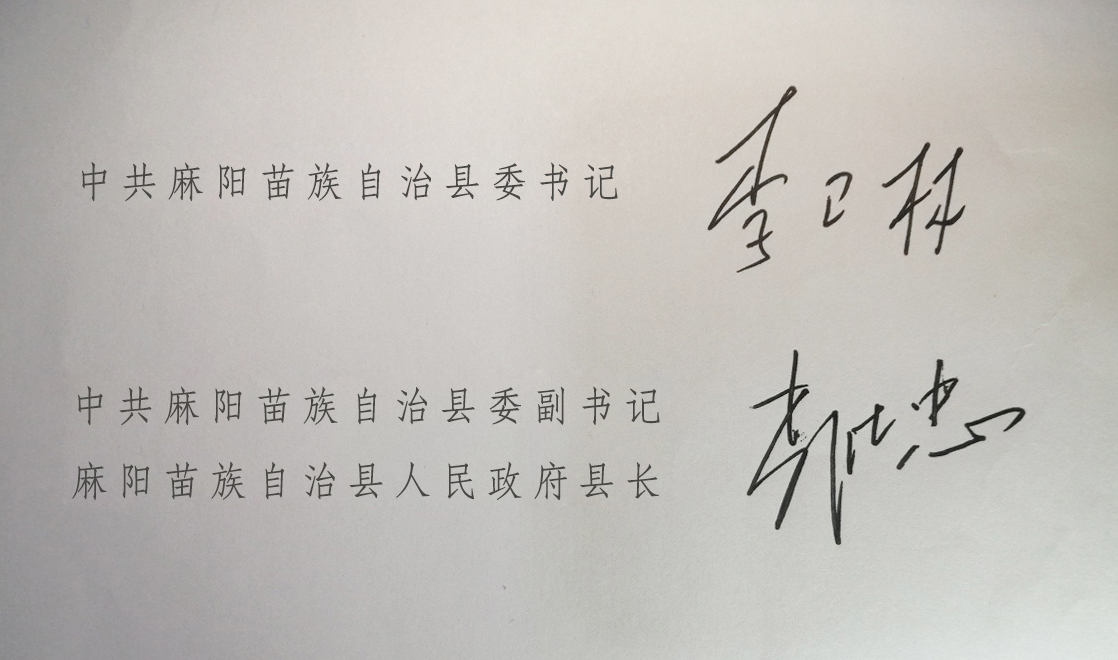 中共麻阳苗族自治县委书记 李卫林
中共麻阳苗族自治县委副书记
麻阳苗族自治县人民政府县长